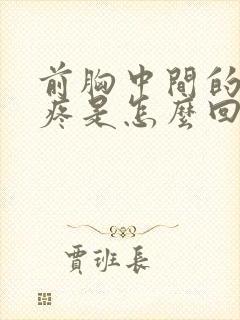 前胸中間的
疼是怎麼回
賈班長